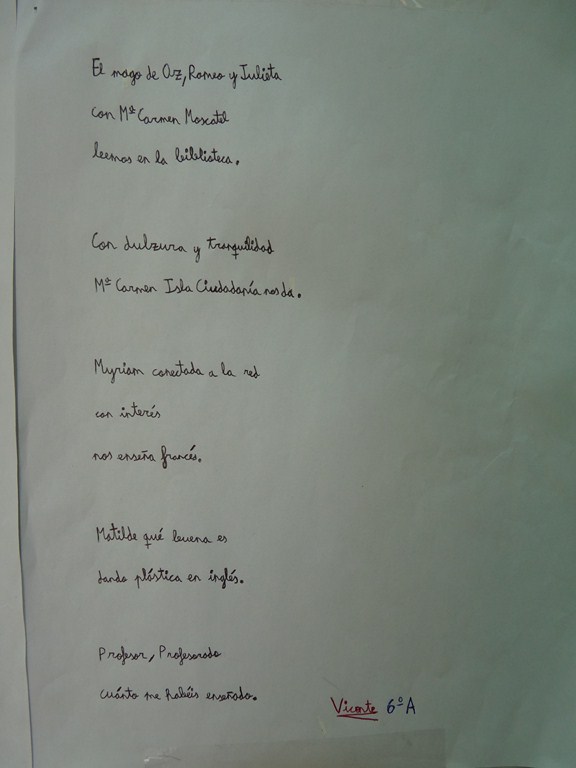 El mago de Oz, Romeo y Julieta
con Mª Carmen Moscatel
leemos en la biblioteca.
Con dulzura y tranquilidad
Mª Carmen Isla Ciudadanía nos da.
Myriam conectada a la red
con interés
nos enseña francés.
Matilde qué buena es
dando plástica en inglés.
Profesor, Profesorado
cuánto me habéis enseñado.
Vicente 6º A